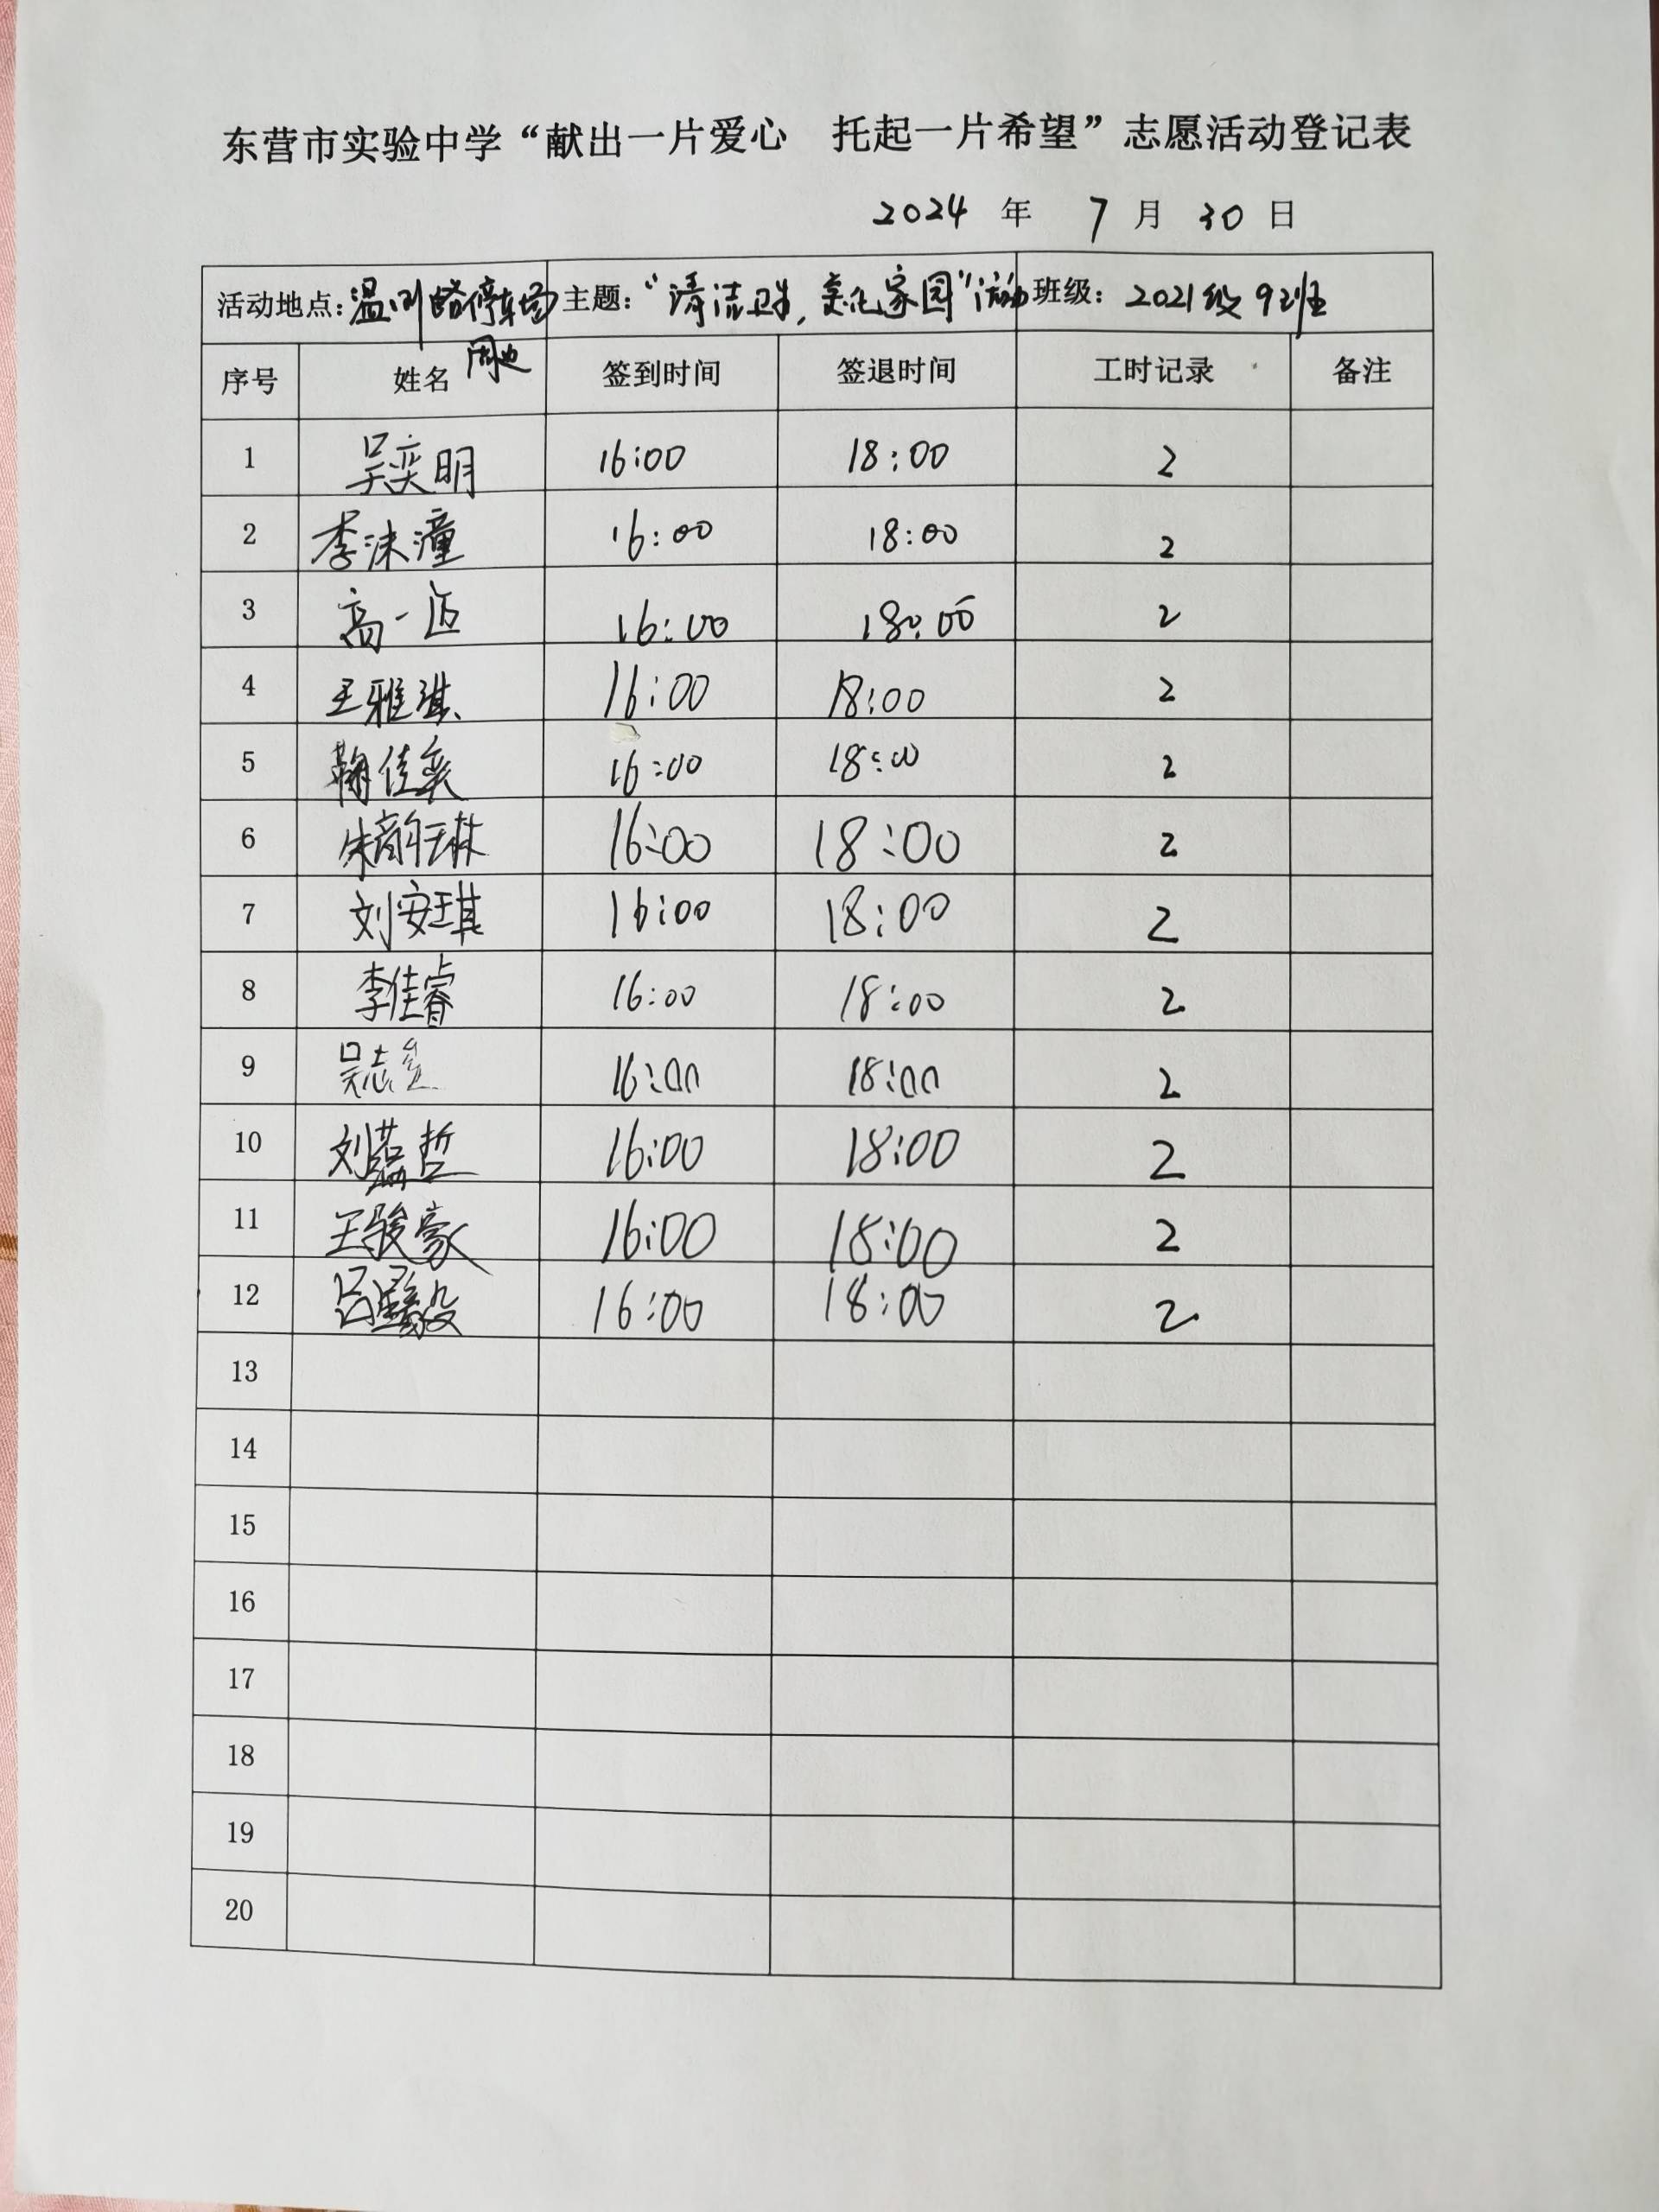 东营市实验中学“献出一片爱心 托起一片希望”志愿活动登记表
2024 年 7 月 30 日
活动地点：温州路停车场周边 主题：“清洁卫生，美化家园”活动 班级：2021级9班
序号 姓名 签到时间 签退时间 工时记录 备注
1 吴奕明 16:00 18:00 2
2 李沫潼 16:00 18:00 2
3 高一 16:00 18:00 2
4 王雅淇 16:00 18:00 2
5 鞠佳奕 16:00 18:00 2
6 朱韵琳 16:00 18:00 2
7 刘安琪 16:00 18:00 2
8 李佳睿 16:00 18:00 2
9 吴志 16:00 18:00 2
10 刘蕴哲 16:00 18:00 2
11 王骏豪 16:00 18:00 2
12 吕 16:00 18:00 2
13
14
15
16
17
18
19
20